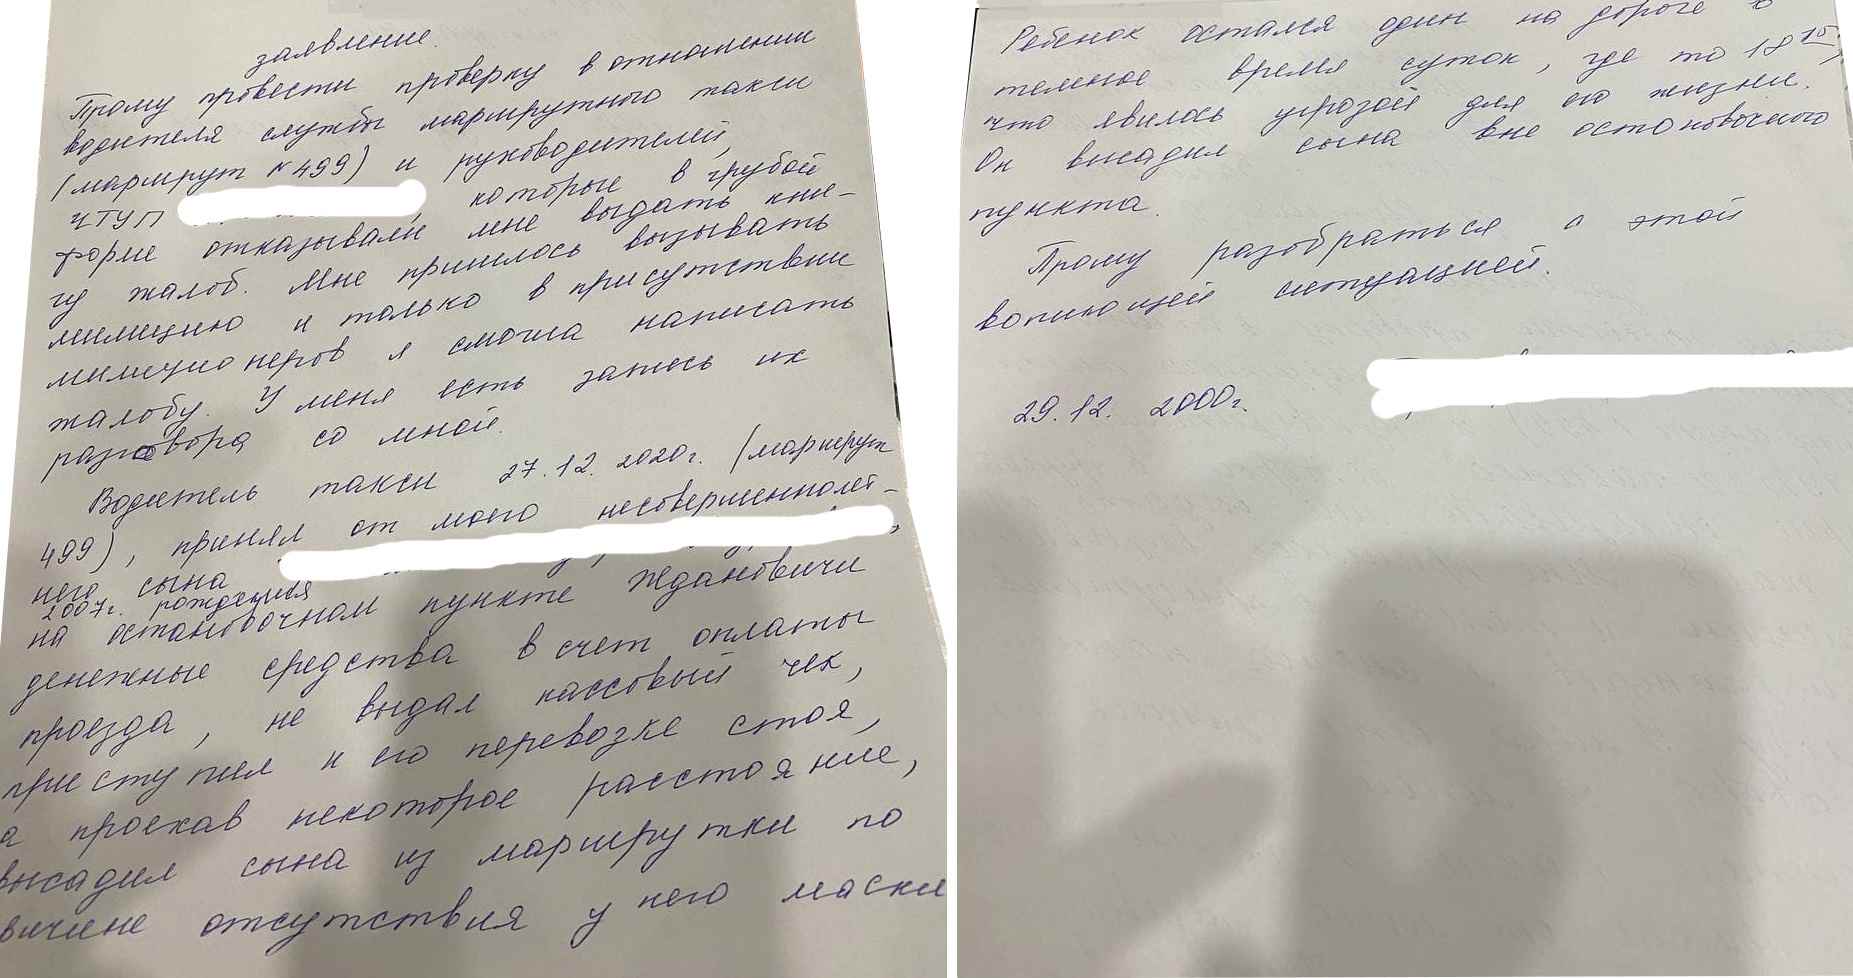 заявление.
Прошу провести проверку в отношении
водителя службы маршрутного такси
(маршрут №499) и руководителей,
ЧТУП , которые в грубой
форме отказывали мне выдать кни-
гу жалоб. Мне пришлось вызывать
милицию и только в присутствии
милиционеров я смогла написать
жалобу. У меня есть запись их
разговора со мной.
Водитель такси 27.12.2020г. (маршрут
499), принял от моего несовершеннолет-
него сына ,
2007г. рождения
на остановочном пункте Ждановичи
денежные средства в счет оплаты
проезда, не выдал кассовый чек,
приступил к его перевозке стоя,
а проехав некоторое расстояние,
высадил сына из маршрутки по
причине отсутствия у него маски
Ребенок остался один на дороге в
темное время суток, где то 18 15,
что явилось угрозой для его жизни.
Он высадил сына вне остановочного
пункта.
Прошу разобраться с этой
вопиющей ситуацией.
29.12. 2000г.